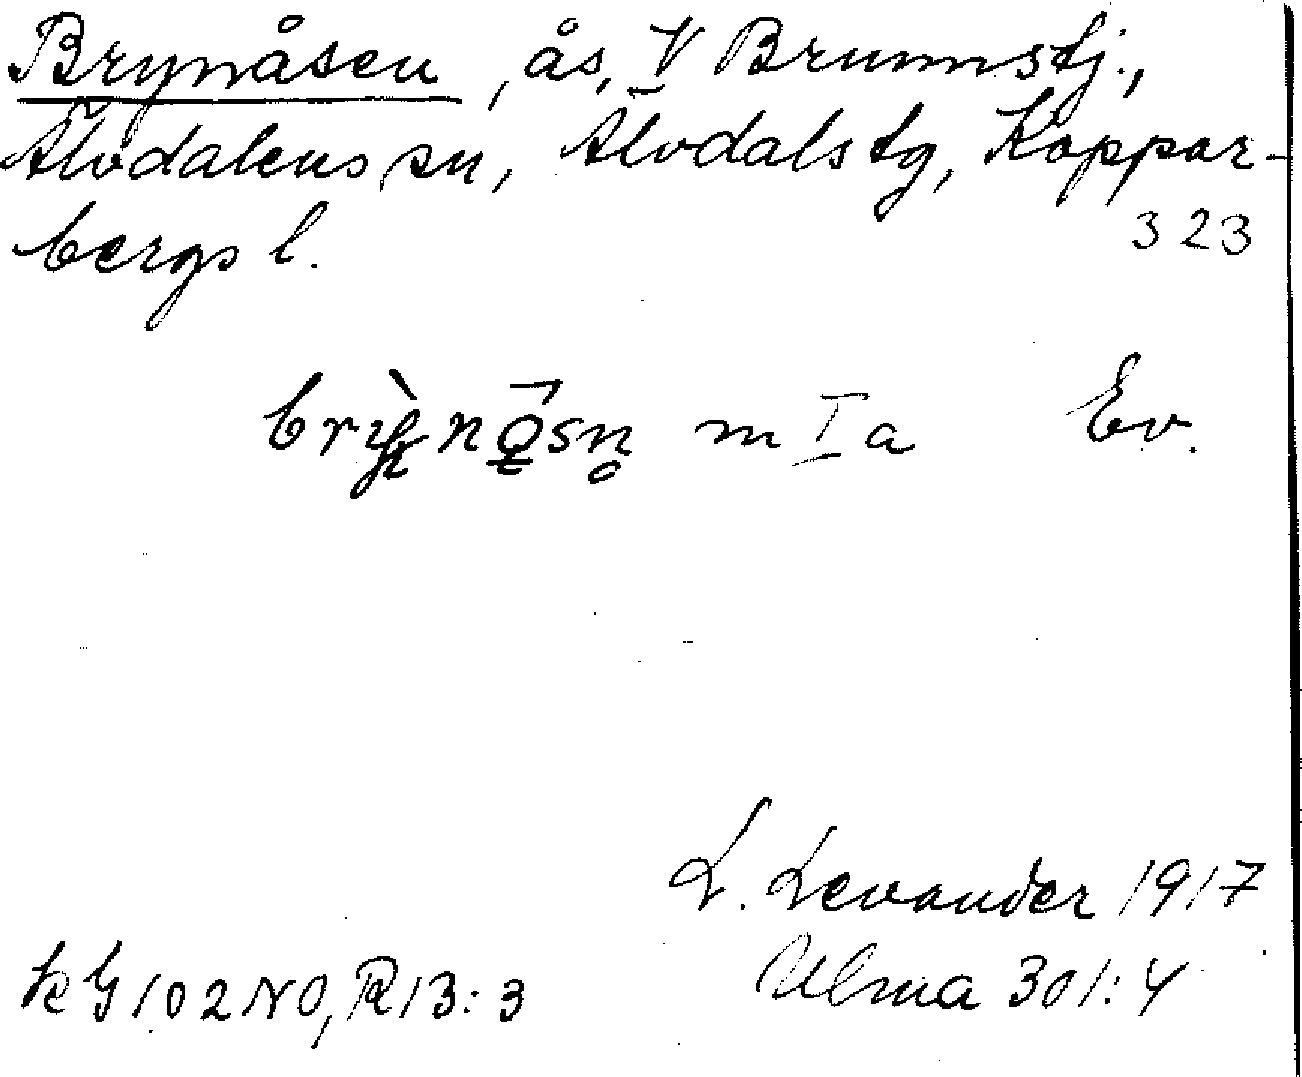 Brynåsen, ås, V Brunnstj.,
Älvdalens sn, Älvdals tg, Koppar-
bergs l.
323
m I a Ev.
L. Levander 1917
Ulma 301:4
kG102NO, R13:3